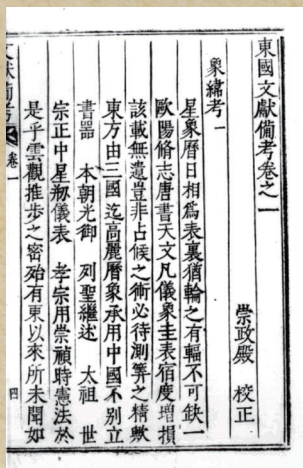 東國文獻備考卷之一
崇政殿 校正
象緯考一
星象曆日相爲表裏猶輪之有輻不可缺一
歐陽脩志唐書天文凡儀象圭表宿度增損
該載無遺豈非占候之術必待測筭之精歟
東方由三國迄高麗曆象承用中國不別立
書器 本朝光御 列聖繼述 太祖 世
宗正中星刱儀表 孝宗用崇禎時憲法於
是乎雲觀推步之密殆有東以來所未開如
文獻備考
卷一
四